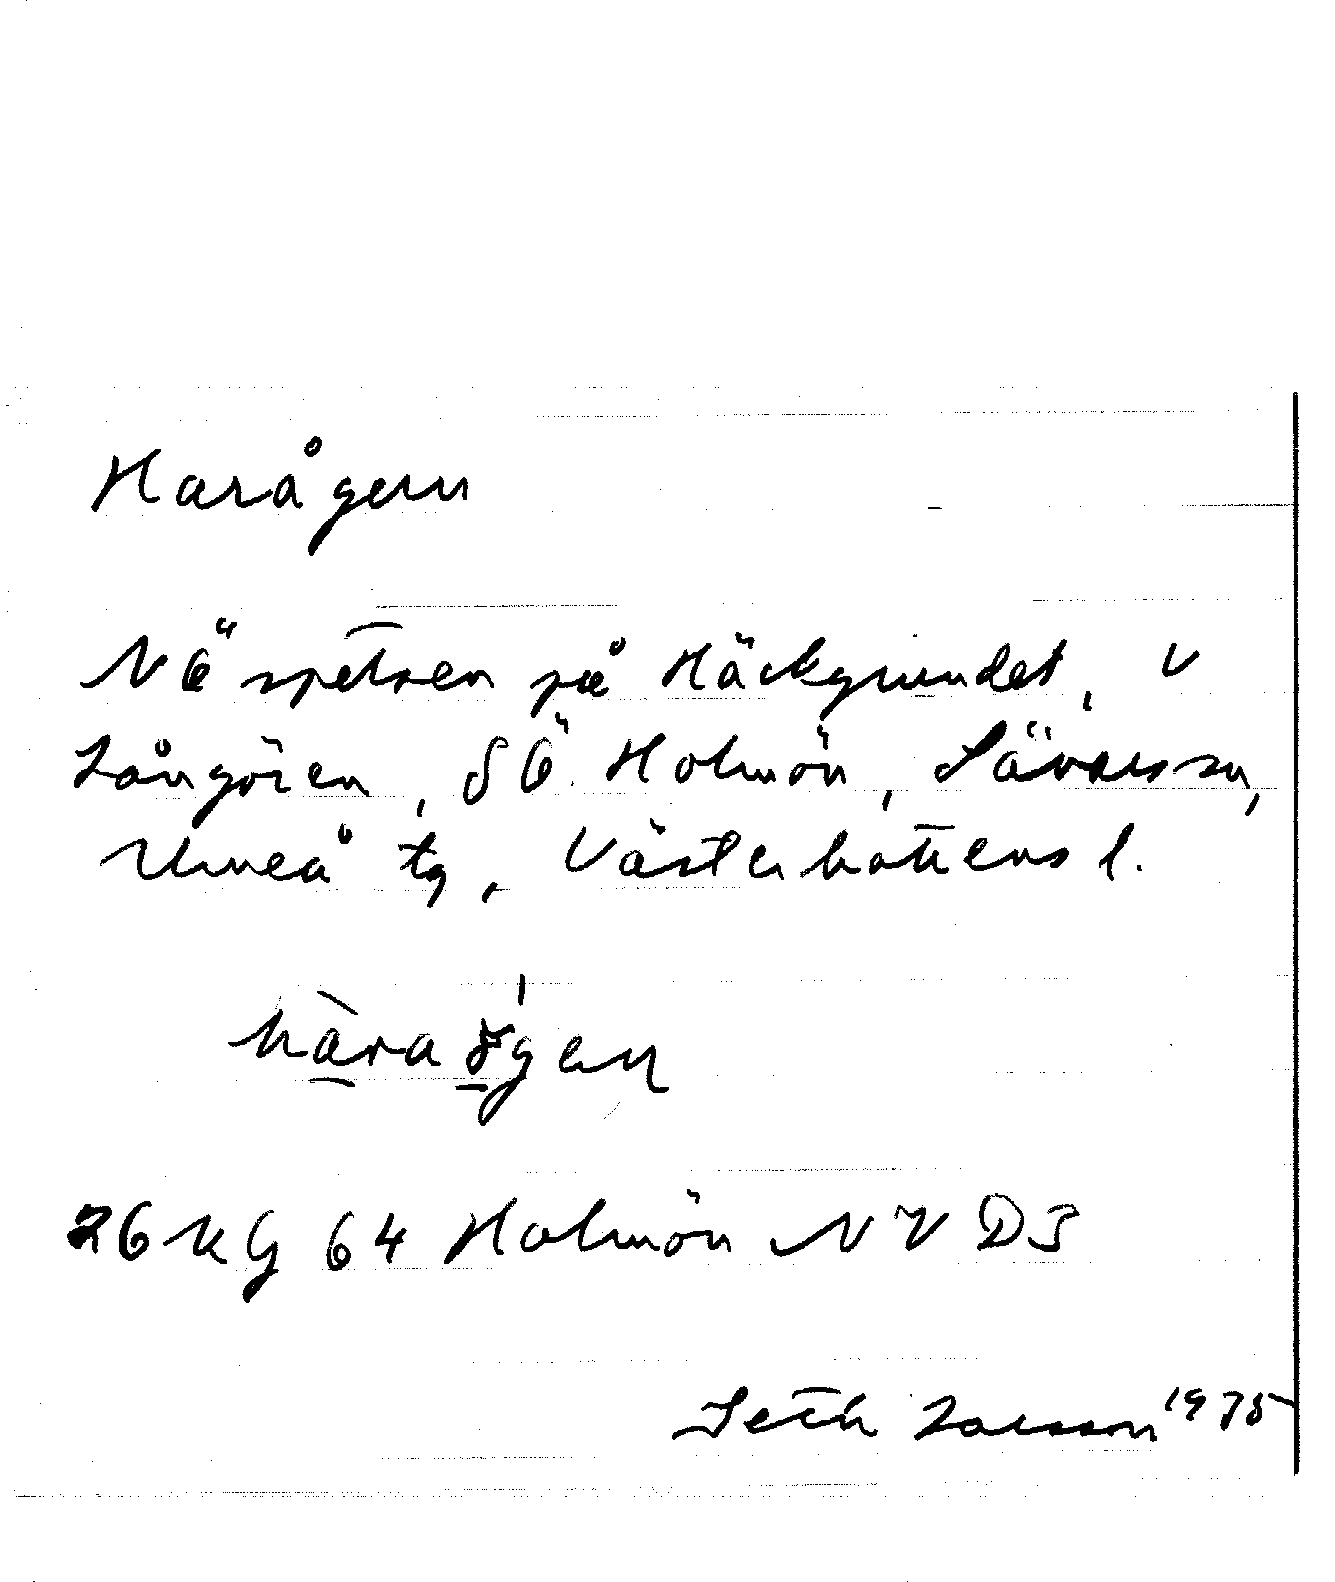 Harågern
NÖ spetsen på Häckgrundet, V
Långören, SÖ Holmön, Sävars sn,
Umeå tg, Västerbottens l.
hàra
26 KG 64 Holmön NV DS
Seth Larsson 1975